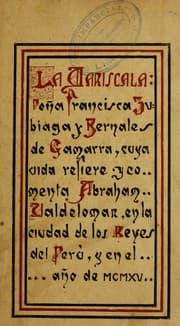 LA MARISCALA:
Doña Francisca Zu-
biaga y Bernales
de Gamarra, cuya
vida refiere y co--
menta Abraham
Valdelomar, en la
ciudad de los Reyes
del Perú, y en el
... año de MCMXV...